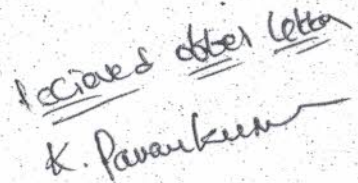 recieved offer letter
K. Pavan Kumar